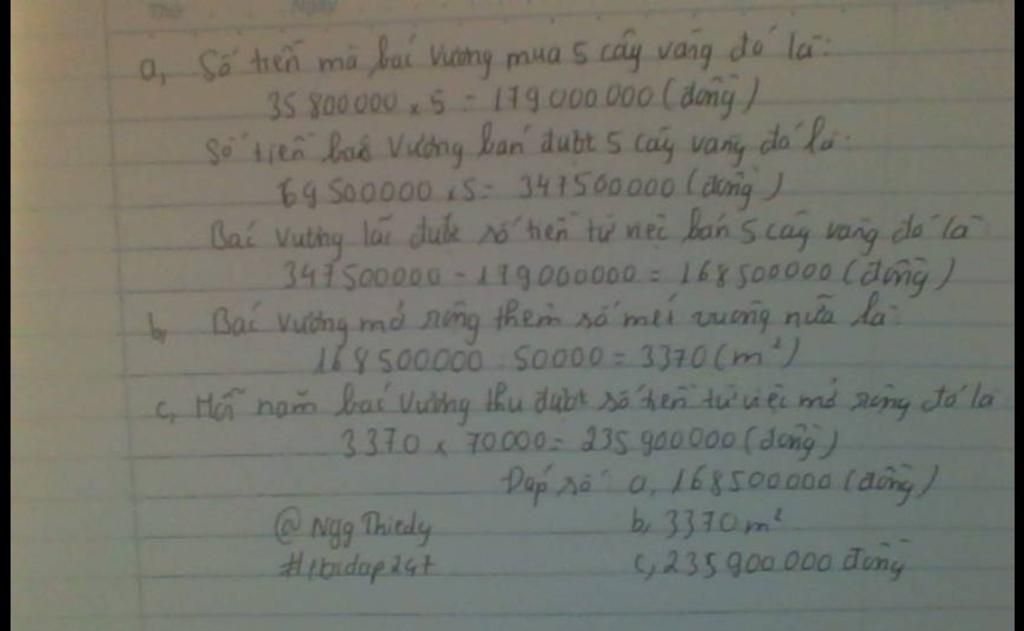 Thứ Ngày
a, Số tiền mà bác Vương mua 5 cây vàng đó là:
35800000 x 5 = 179000000 (đồng)
Số tiền bác Vương bán được 5 cây vàng đó là:
69500000 x 5 = 347500000 (đồng)
Bác Vương lãi được số tiền từ việc bán 5 cây vàng đó là
347500000 - 179000000 = 168500000 (đồng)
b, Bác Vương mở rộng thêm số mét vuông nữa là:
168500000 : 50000 = 3370 (m²)
c, Mỗi năm bác Vương thu được số tiền từ việc mở rộng đó là
3370 x 70000 = 235900000 (đồng)
Đáp số: a, 168500000 (đồng)
@Ngg Thiedy b, 3370 m²
c, 235900000 đồng